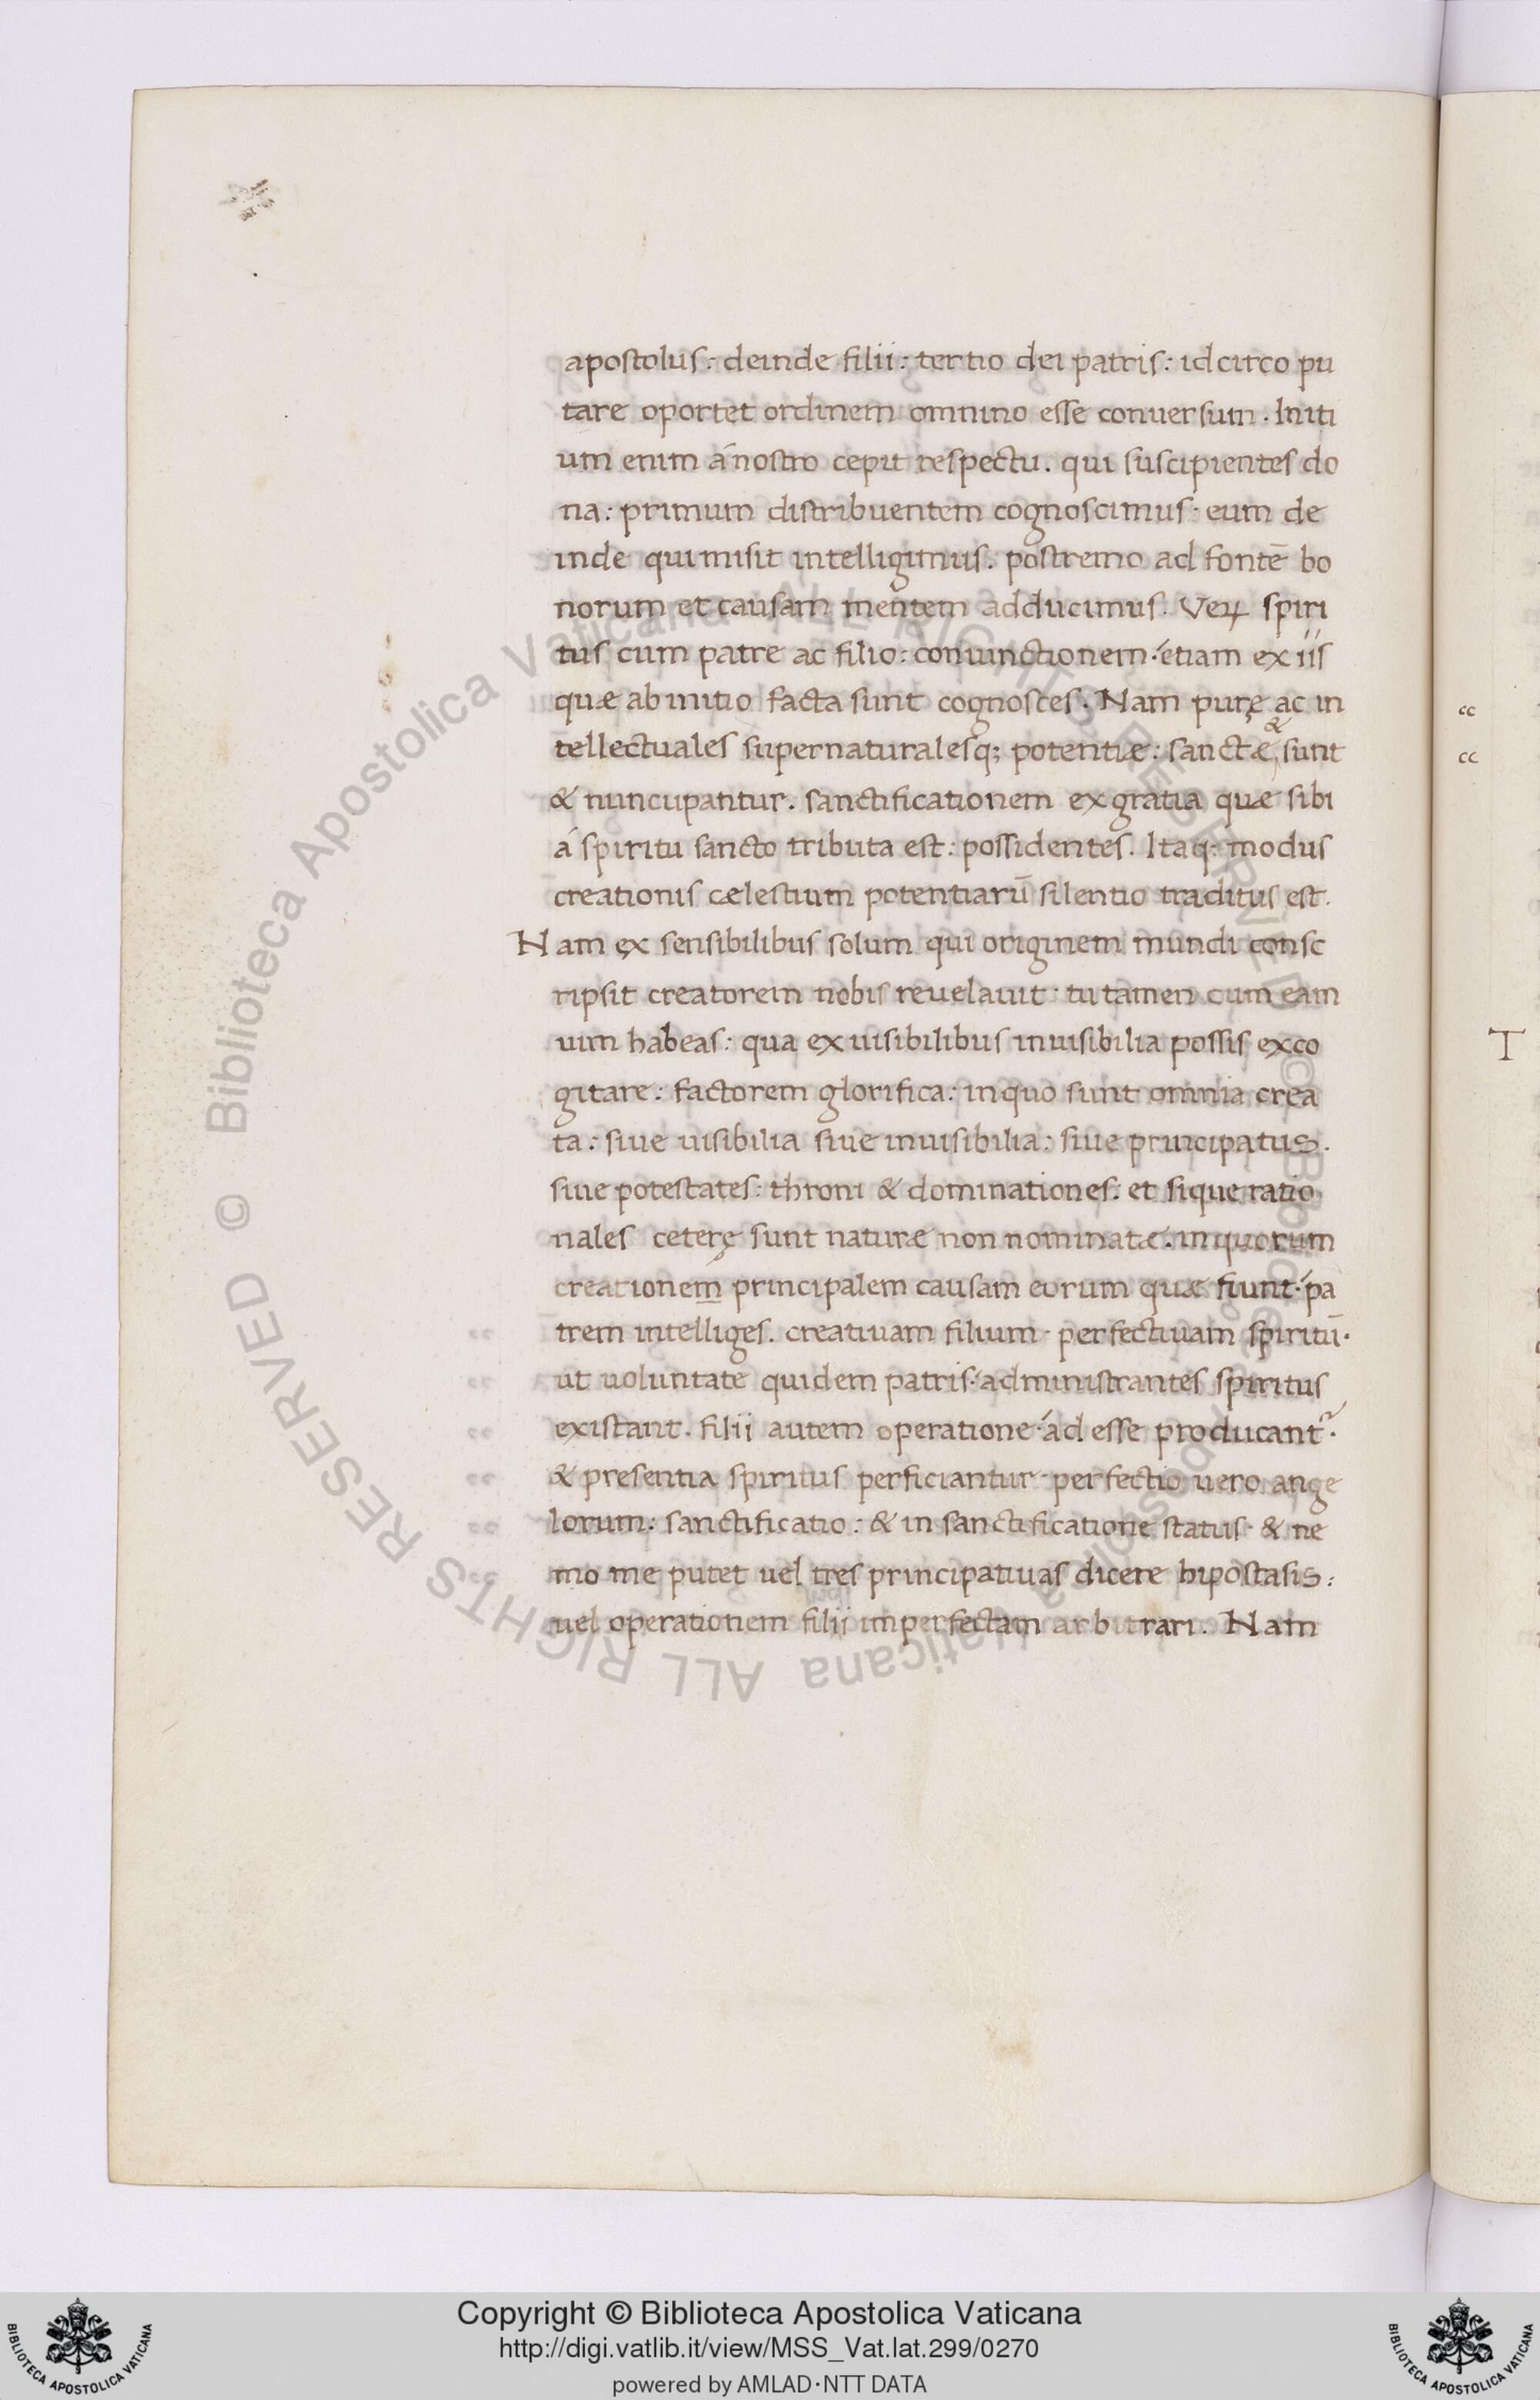 apostolus: deinde filii: tertio dei patris: idcirco pu
tare oportet ordinem omnino esse conuersum. Initi
um enim á nostro cepit respectu. qui suscipientes do
na: primum distribuentem cognoscimus· eum de
inde qui misit intelligimus. postremo ad fontē bo
norum et causam mentem adducimus. Veꝝ spiri
tus cum patre ac filio: coniunctionem· etiam ex iis
quæ ab initio facta sunt cognosces. Nam purę ac in
tellectuales supernaturalesq; potentiæ: sanctæ & sunt
& nuncupantur. sanctificationem ex gratia quæ sibi
á spiritu sancto tributa est: possidentes. Itaq; modus
creationis cælestium potentiarū silentio traditus est.
Nam ex sensibilibus solum qui originem mundi consc
ripsit creatorem nobis reuelauit· tu tamen cum eam
uim habeas: qua ex uisibilibus inuisibilia possis exco
gitare: factorem glorifica: in quo sunt omnia crea
ta: siue uisibilia siue inuisibilia: siue principatus.
siue potestates: throni & dominationes: et sique ratio
nales ceterę sunt naturæ non nominatæ. in quorum
creationem principalem causam eorum quæ fiunt· pa
trem intelliges. creatiuam filium· perfectiuam spiritū·
ut uoluntate quidem patris· administrantes spiritus
existant. filii autem operatione· ad esse producant᷑·
& presentia spiritus perficiantur· perfectio uero ange
lorum: sanctificatio: & in sanctificatione status· & ne
mo me putet uel tres principatiuas dicere hipostasis:
uel operationem filii imperfectam arbitrari. Nam
cc
cc
T
Biblioteca Apostolica Vaticana ALL RIGHTS RESERVED © Biblioteca Apostolica Vaticana ALL RIGHTS RESERVED ©
Copyright © Biblioteca Apostolica Vaticana
http://digi.vatlib.it/view/MSS_Vat.lat.299/0270
powered by AMLAD·NTT DATA
BIBLIOTECA APOSTOLICA VATICANA
BIBLIOTECA APOSTOLICA VATICANA